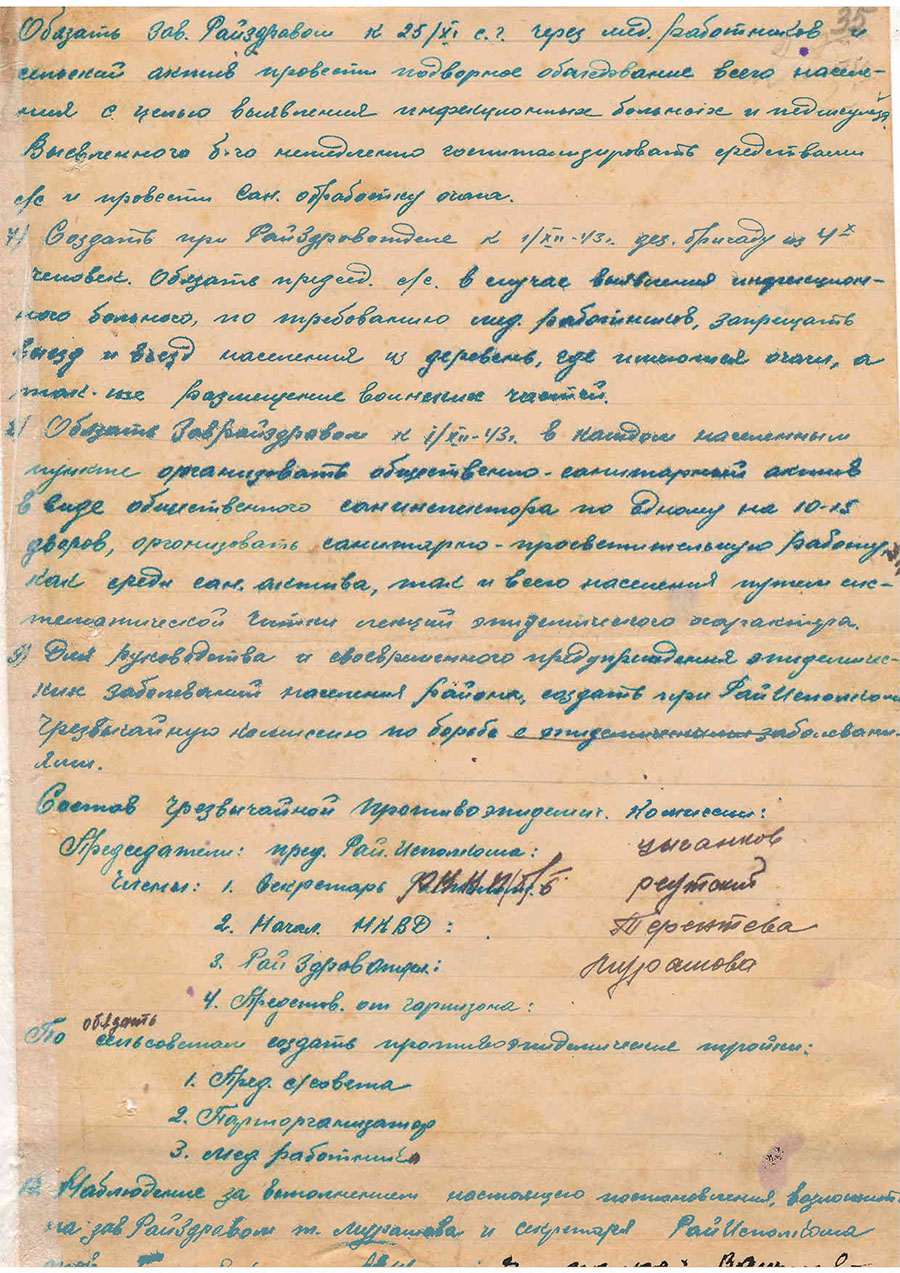 35
Обязать Зав. Райздравом к 25/XI с.г. через мед. работников и
сельский актив провести подворное обследование всего населе-
ния с целью выявления инфекционных больных и педикулёза.
Выявленного б-го немедленно госпитализировать средствами
с/с и провести сан. обработку очага.
7) Создать при РайЗдравотделе к 1/XII-43г. дез. бригаду из 4х
человек. Обязать председ. с/с. в случае выявления инфекцион-
ного больного, по требованию мед. работников, запрещать
выезд и въезд населения из деревень, где имеются очаги, а
так-же размещение воинских частей.
8) Обязать Заврайздравом к 1/XII-43г. в каждом населенным
пункте организовать общественно-санитарный актив
в виде общественного санинспектора по одному на 10-15
дворов, организовать санитарно-просветительную работу,
как среди сан. актива, так и всего населения путем сис-
тематической читки лекций эпидемического характера.
9) Для руководства и своевременного предупреждения эпидемичес-
ких заболеваний населения района, создать при РайИсполком
Чрезвычайную комиссию по борьбе с эпидемическими заболевани-
ями.
Состав Чрезвычайной Противоэпидемич. Комиссии:
Председатели: пред. Рай.Исполкома: Цыганков
Члены: 1. Секретарь РККП/б/Б Реутский
2. Начал. НКВД: Терентева
3. РайЗдравотдел: Мурашова
4. Представ. от гарнизона:
обязать
По сельсоветам создать противоэпидемические тройки:
1. Пред. с/совета
2. Парторганизатор
3. Мед работника
Наблюдение за выполнением настоящего постановления, возложить
на зав РайЗдравом т. Мурашова и секретаря РайИсполкома